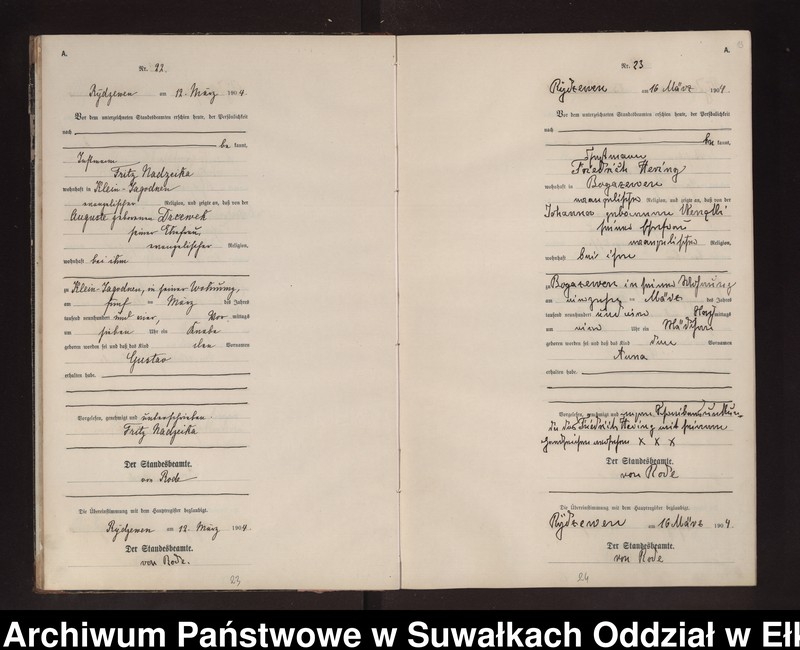 A.
Nr. 22.
Rydzewen am 12. März 1904.
Vor dem unterzeichneten Standesbeamten erschien heute, der Persönlichkeit
nach
be kannt,
Instmann
Fritz Nadzeika
wohnhaft in Klein-Jagodnen
evangelischer Religion, und zeigte an, daß von der
Auguste geborenen Dzezewek
seiner Ehefrau,
evangelischer Religion,
wohnhaft bei ihm
zu Klein-Jagodnen, in seiner Wohnung,
am fünf ten März des Jahres
tausend neunhundert und vier, Vor mittags
um sieben Uhr ein Knabe
geboren worden sei und daß das Kind den Vornamen
Gustav
erhalten habe.
Vorgelesen, genehmigt und unterschrieben
Fritz Nadzeika
Der Standesbeamte.
von Rode
Die Übereinstimmung mit dem Hauptregister beglaubigt.
Rydzewen am 12. März 1904.
Der Standesbeamte.
von Rode.
23
A.
Nr. 23
Rydzewen am 16 März 1904.
Vor dem unterzeichneten Standesbeamten erschien heute, der Persönlichkeit
nach
be kannt,
Instmann
Friedrich Hering
wohnhaft in Bogazewen
evangelischer Religion, und zeigte an, daß von der
geborenen
seiner Ehefrau
evangelischer Religion,
wohnhaft bei ihm
zu Bogazewen in seiner Wohnung
am ten März des Jahres
tausend neunhundert und vier Nach mittags
um vier Uhr ein Mädchen
geboren worden sei und daß das Kind den Vornamen
Anna
erhalten habe.
Vorgelesen, genehmigt und wegen Schreibensunkun-
de des Friedrich Hering mit seinem
Handzeichen versehen x x x
Der Standesbeamte.
von Rode
Die Übereinstimmung mit dem Hauptregister beglaubigt.
Rydzewen am 16 März 1904.
Der Standesbeamte.
von Rode
24
Archiwum Państwowe w Suwałkach Oddział w Ełk